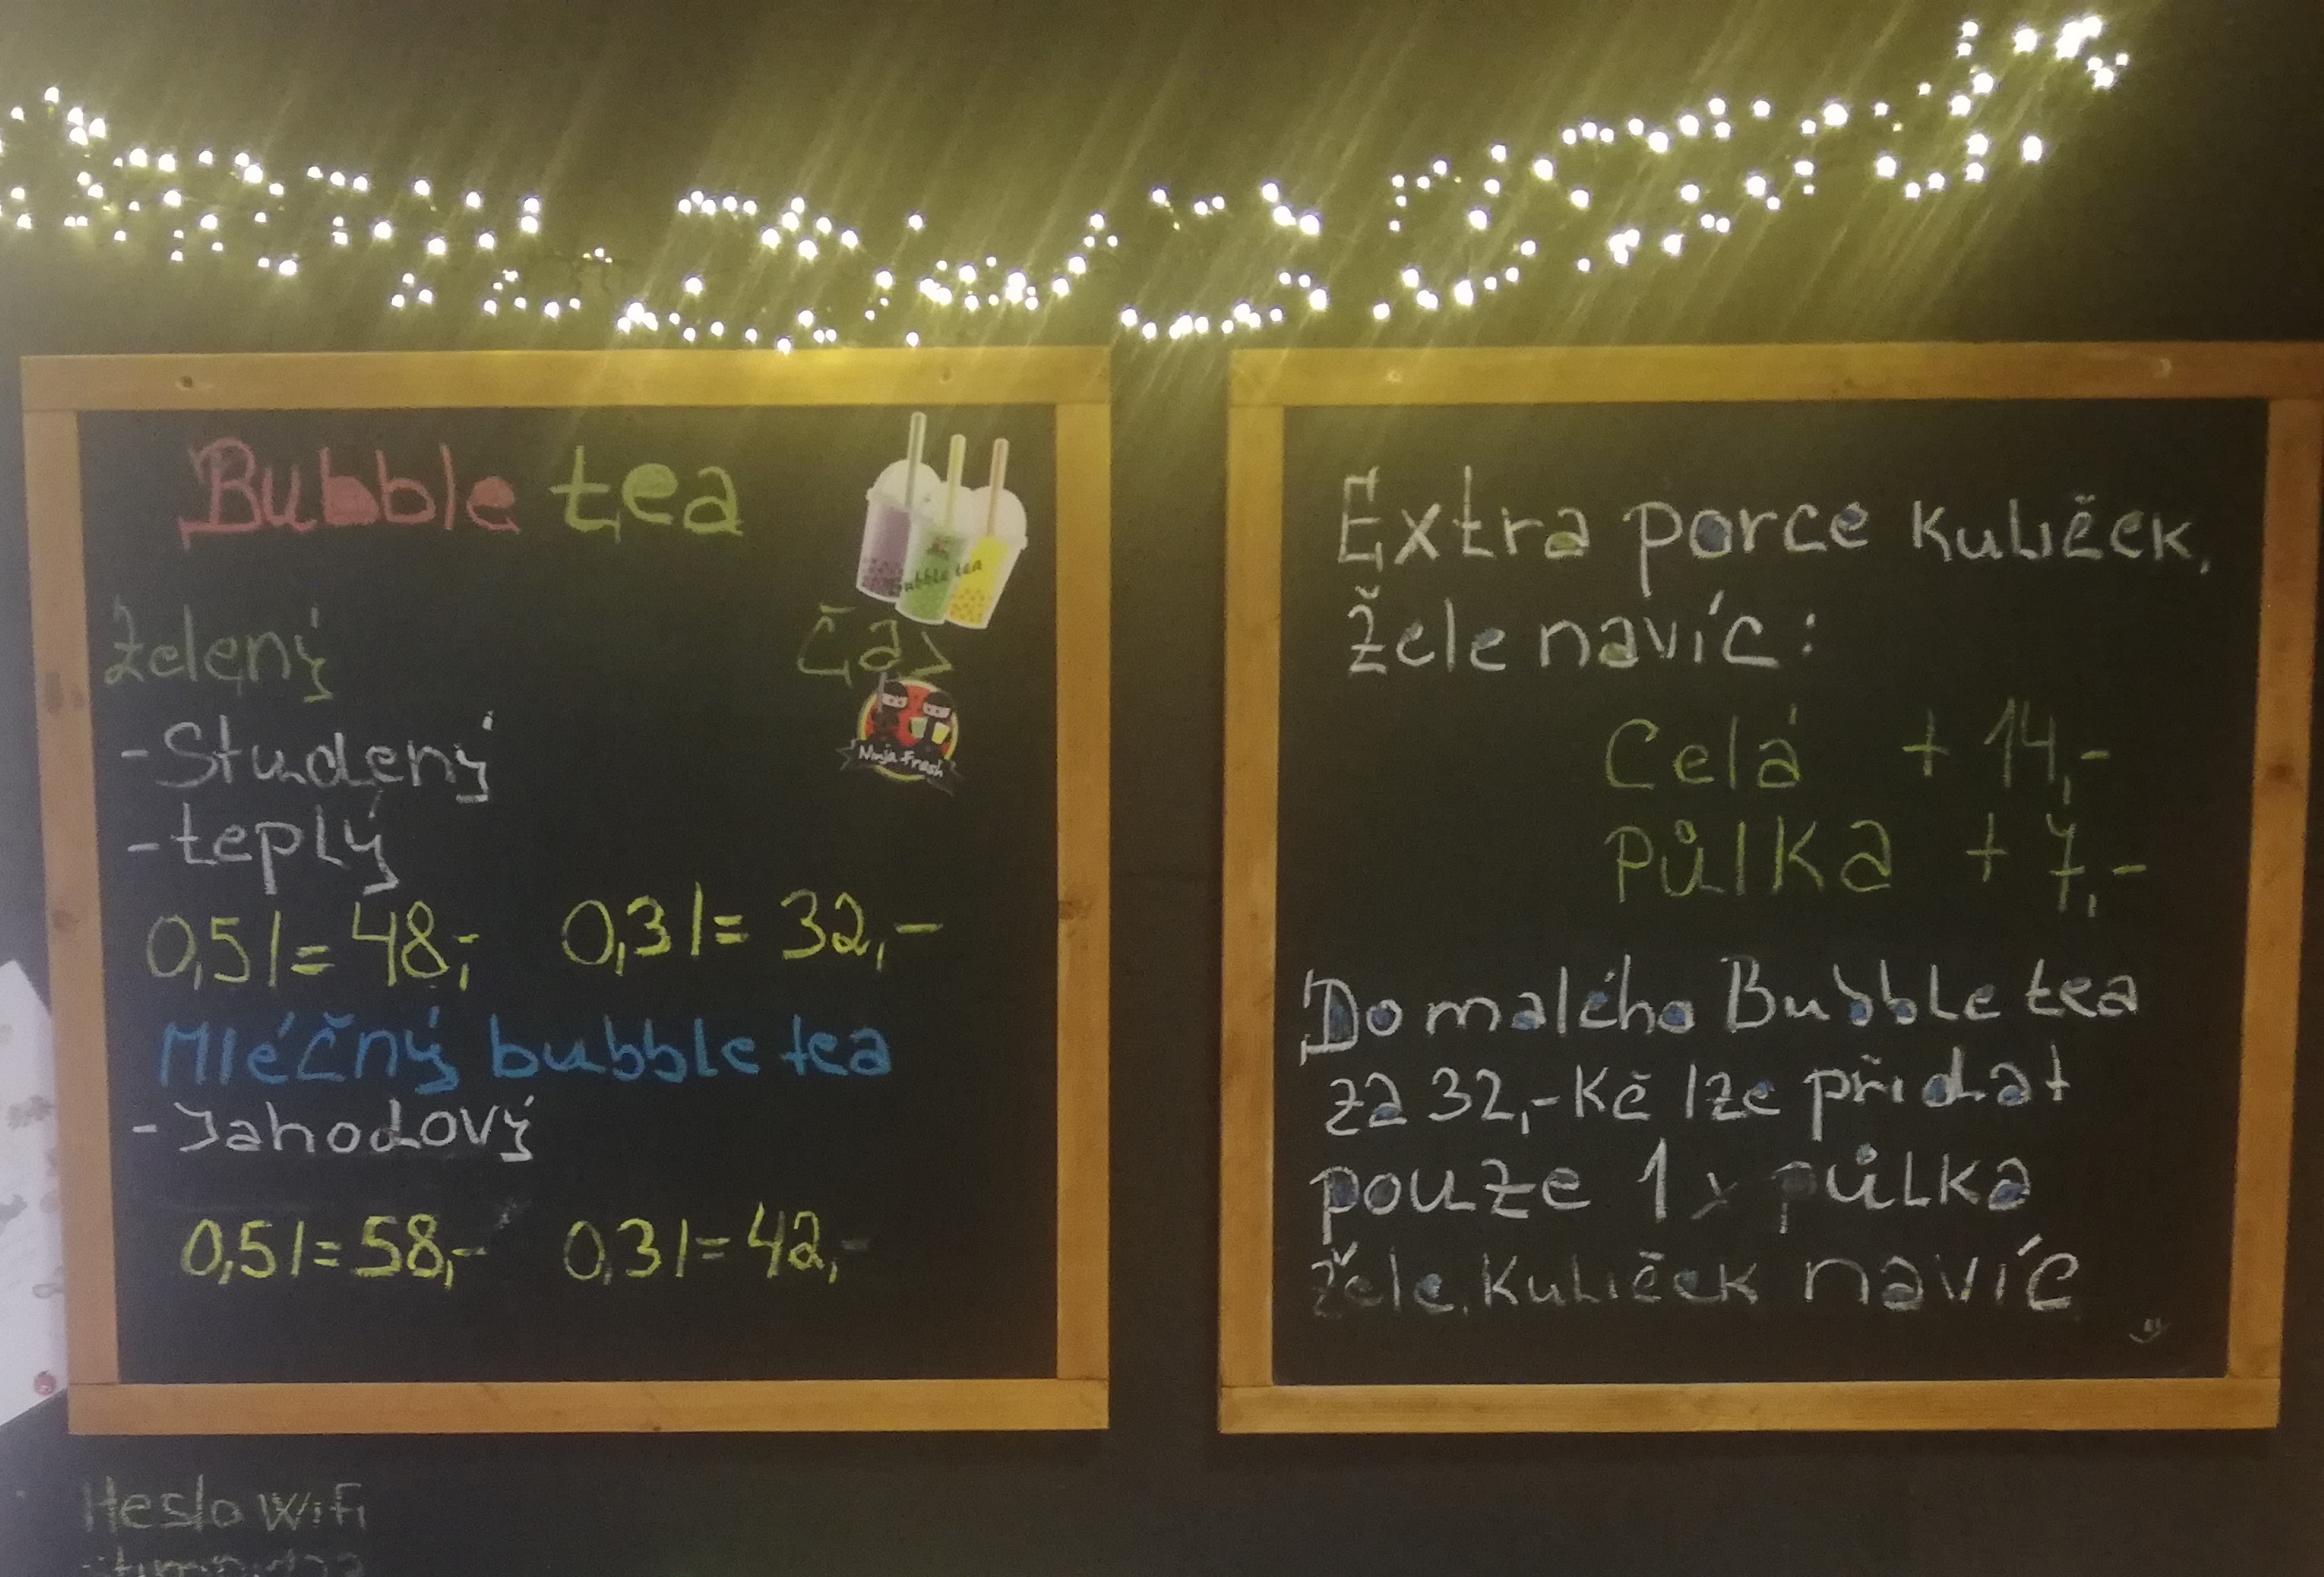 Bubble tea
Bubble tea
Zelený
Čas
Ninja Fresh
-Studený
-teplý
0,5l=48,- 0,3l=32,-
Mléčný bubble tea
-Jahodový
0,5l=58,- 0,3l=42,-
Extra porce kuliček,
žele navíc:
Celá +14,-
Půlka +7,-
Do malého Bubble tea
za 32,-Kč lze přidat
pouze 1x půlka
žele, kuliček navíc
Heslo wifi